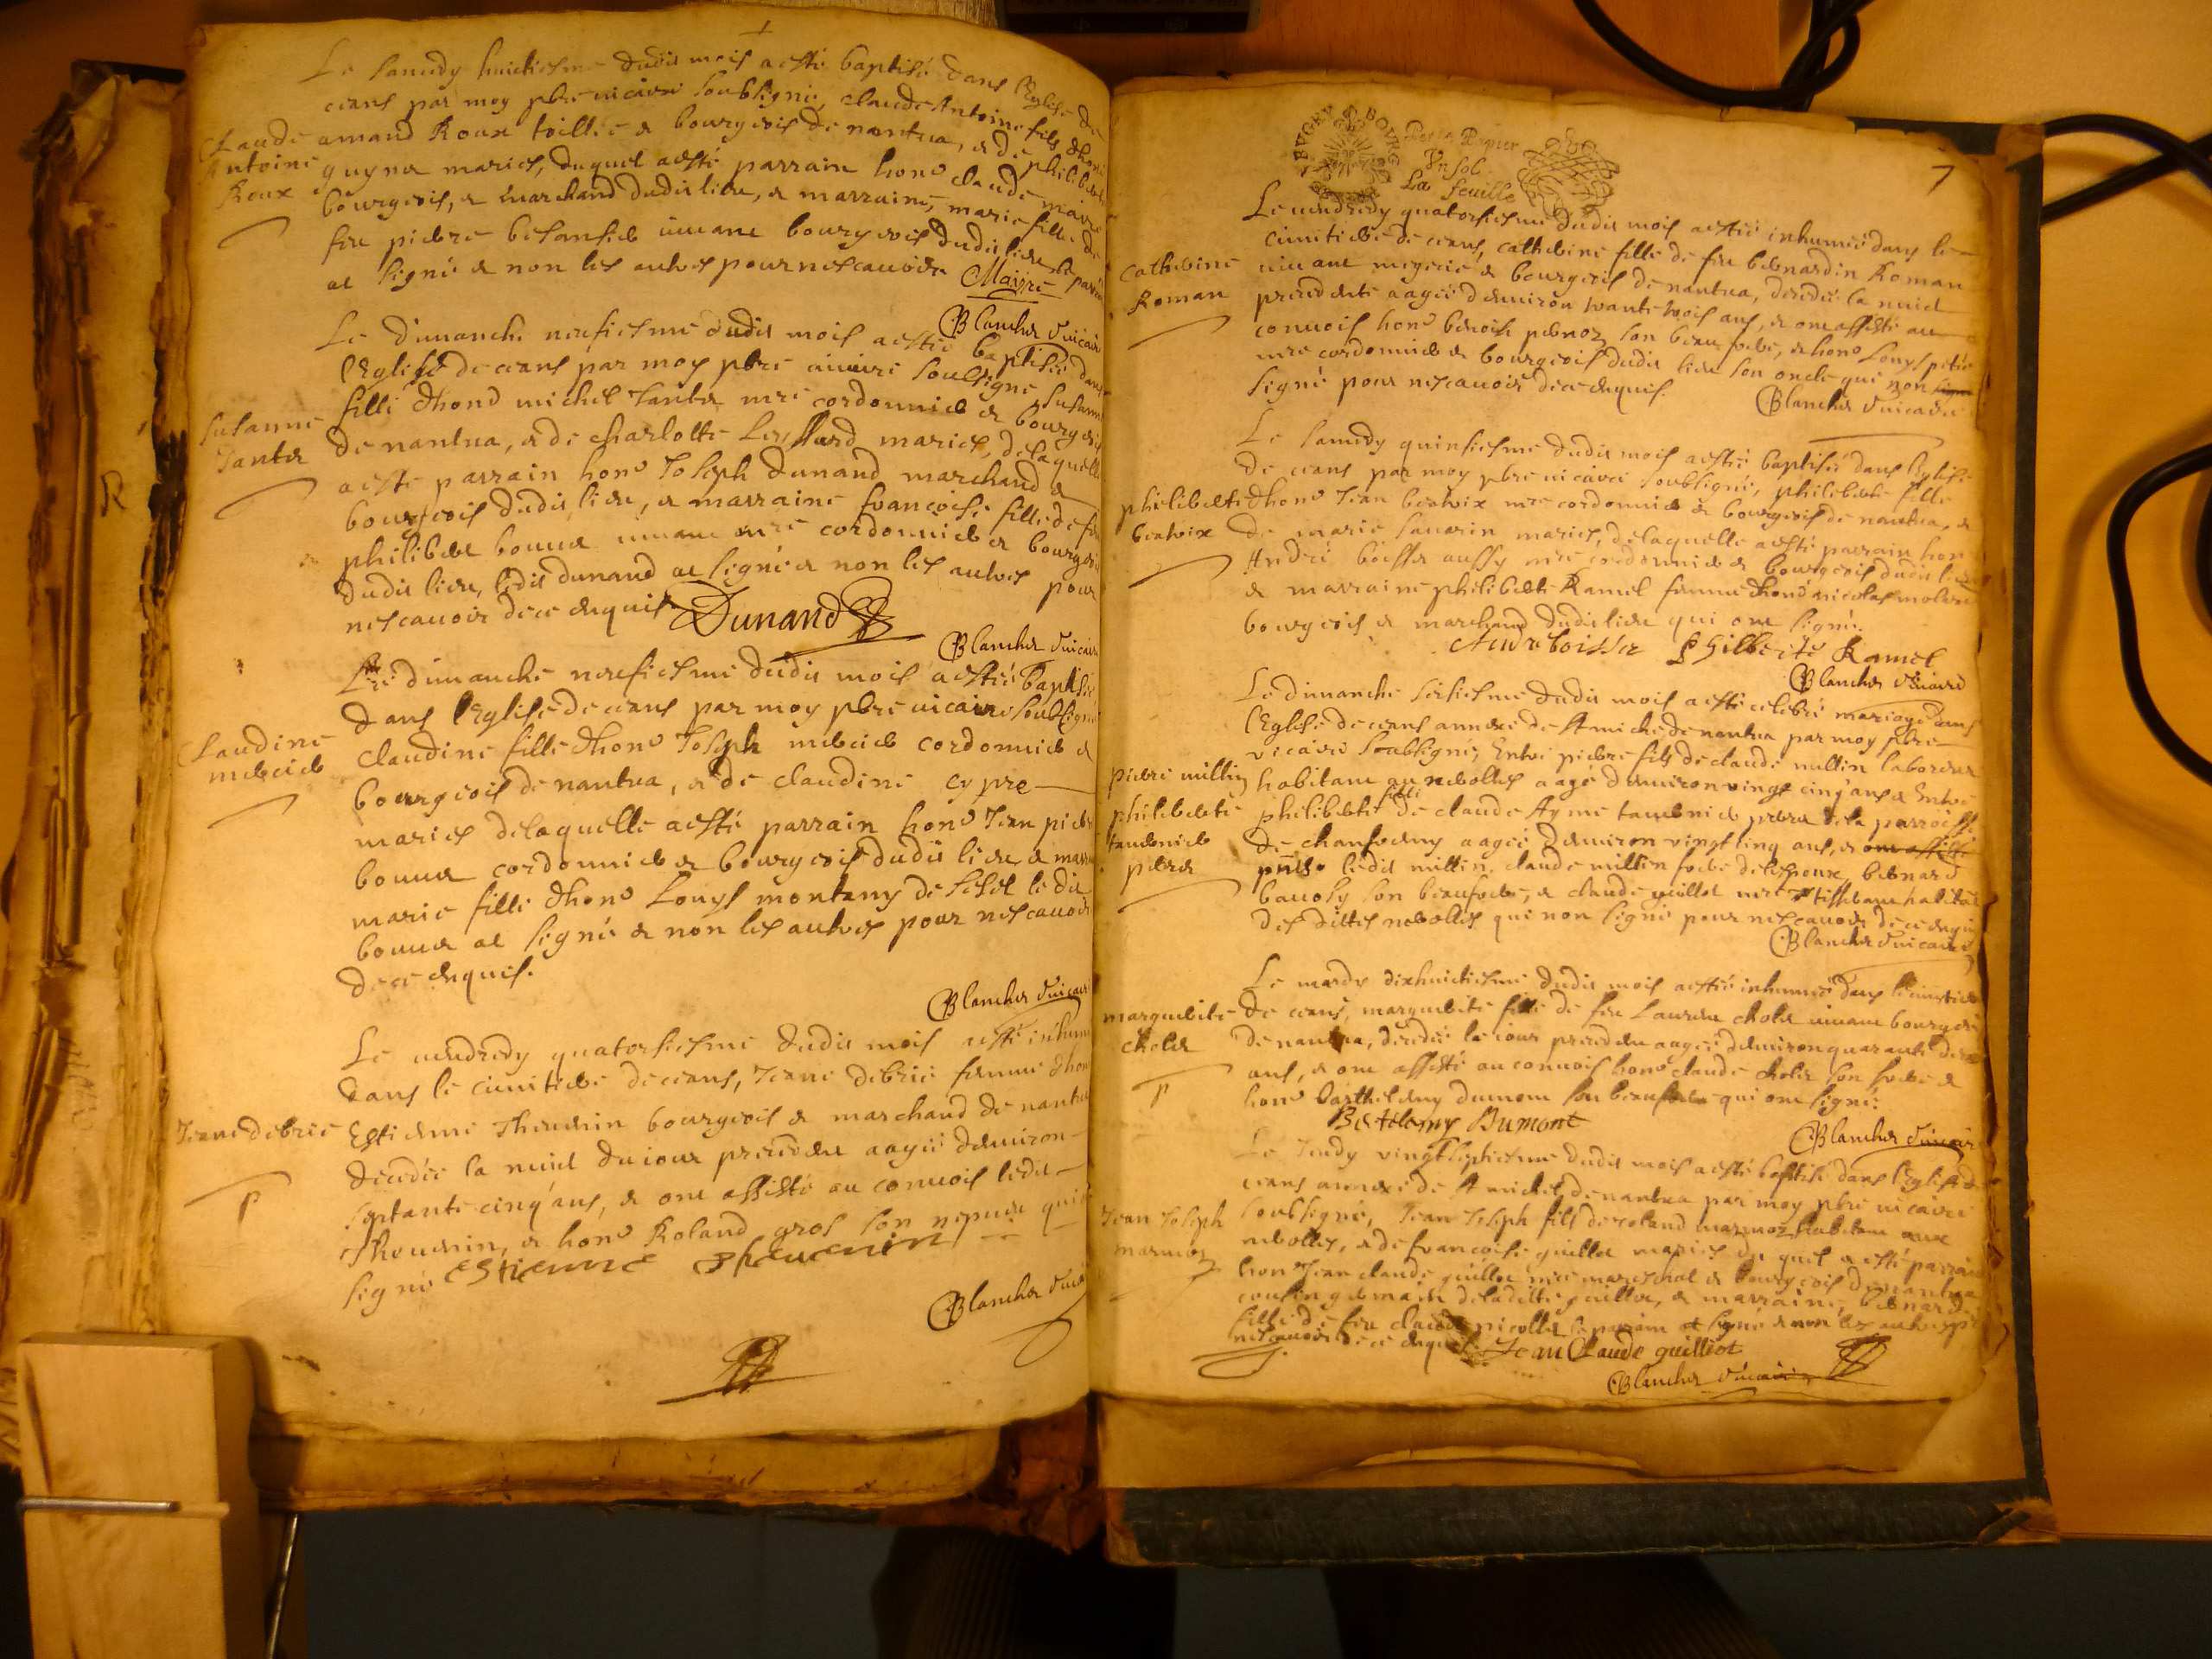 Le samedy huictiesme dudit mois a esté baptisé dans l'Eglise de
ceans par moy pbre vicaire soubsigné, claude Antoine fils d'hono
Claude
Antoine
Roux
amand Roux toillié et bourgeois de nantua, et de philiberte
guynet mariés, duquel a esté parrain hono claude maire
bourgeois, et marchand dudit lieu, et marraine, marie fille de
feu pierre besansieb vivant bourgeois dudit lieu le parrain
at signé et non les autres pour ne scavoir
Maire
Blanchet vicaire
Le dimanche neufiesme dudit mois a esté baptisée dans
l'Eglise de ceans par moy pbre vicaire soubsigné Susanne
Susanne
Tantet
fille d'hono michel Tantet mre cordonnier et bourgeois
de nantua, et de charlotte mariés, de laquelle
a esté parrain hono Joseph Dunand marchand et
bourgeois dudit lieu, et marraine francoise fille de feu
philibert bouvet vivant mre cordonnier et bourgeois
dudit lieu, ledit dunand at signé et non les autres pour
ne scavoir de ce enquis.
Dunand
Blanchet vicaire
Le dimanche neufiesme dudit mois a esté baptisée
dans l'Eglise de ceans par moy pbre vicaire soubsigné
Claudine
mercier
claudine fille d'hono Joseph mercier cordonnier et
bourgeois de nantua, et de claudine cypre
mariés de laquelle a esté parrain hono Jean pierre
bouvet cordonnier et bourgeois dudit lieu et marraine
marie fille d'hono Louys montany de seisel ledit
bouvet at signé et non les autres pour ne scavoir
de ce enquis.
Blanchet vicaire
Le vendredy quatorsiesme dudit mois a esté inhumée
dans le cimitiere de ceans, Jeane debrié femme d'hono
Jeane debrié
Estienne Thevenin bourgeois et marchand de nantua
decedée la nuict du jour precedent aagée d'environ
septante cinq ans, et ont assisté au convois ledit
Thevenin, et hono Roland gros son nepveu qui
signé Estienne Thevenin
Blanchet vicaire
BVGEY BOVRG
Pour Papier
Un sol
La feuille
7
Le vendredy quatorsiesme dudit mois a esté inhumée dans le
cimitiere de ceans, catherine fille de feu bernardin Roman
catherine
Roman
vivant megecié et bourgeois de nantua, decedée la nuict
precedente aagée d'environ trante trois ans, et ont assisté au
convois hono benoist pernoz son beau frere, et hono Louys petit
mre cordonnier et bourgeois dudit lieu son oncle qui non
signé pour ne scavoir de ce enquis.
Blanchet vicaire
Le samedy quinsiesme dudit mois a esté baptisée dans l'Eglise
de ceans par moy pbre vicaire soubsigné, philiberte fille
philiberte
beatrix
d'hono Jean beatrix mre cordonnier et bourgeois de nantua, et
de marie savarin mariés, de laquelle a esté parrain hono
André boisset aussy mre cordonnier et bourgeois dudit lieu
et marraine philiberte Ramel femme d'hono nicolas molare
bourgeois et marchand dudit lieu qui ont signé.
Andre boisset Philberte Ramel
Blanchet vicaire
Le dimanche seisiesme dudit mois a esté celebré mariage dans
l'Eglise de ceans annexe de st michel de nantua par moy pbre
vicaire soubsigné, Entre pierre fils de claude millin laboreur
pierre millin
habitant au nerolles aagé d'environ vingt cinq ans et Entre
philiberte
tavernier
philiberte fille de claude Ayme tavernier de la parroisse
de chanfromy aagée d'environ vingt cinq ans,
ledit millin, claude millin frere de lespoux bernard
bavosy son beaufrere, et claude guillot mre tisserant habitant
des dittes nerolles qui non signé pour ne scavoir de ce enquis
Blanchet vicaire
Le mardy dixhuictiesme dudit mois a esté inhumée dans le cimitiere
marguerite
cholet
de ceans, marguerite fille de feu Laurent cholet vivant bourgeois
de nantua, decedée le jour precedent aagée d'environ quarante deux
ans, et ont assisté au convois hono claude cholet son frere et
hono barthelemy dumont son beaufrere qui ont signé.
Bertelemy Dumont
Blanchet vicaire
Le Jeudy vingtseptiesme dudit mois a esté baptisé dans l'Eglise de
ceans annexe de st michel de nantua par moy pbre vicaire
Jean Joseph
marmoz
soubsigné, Jean Joseph fils de roland marmoz habitant aux
nerolles, et de francoise guillot mariés du quel a esté parrain
hono Jean claude guillot mre mareschal et bourgeois de nantua
cousin germain de laditte guillot, et marraine, bernarde
fille de feu claude nicollet le parrain at signé et non les autres pr
ne scavoir de ce enquis. Jean Claude guilliot
Blanchet vicaire